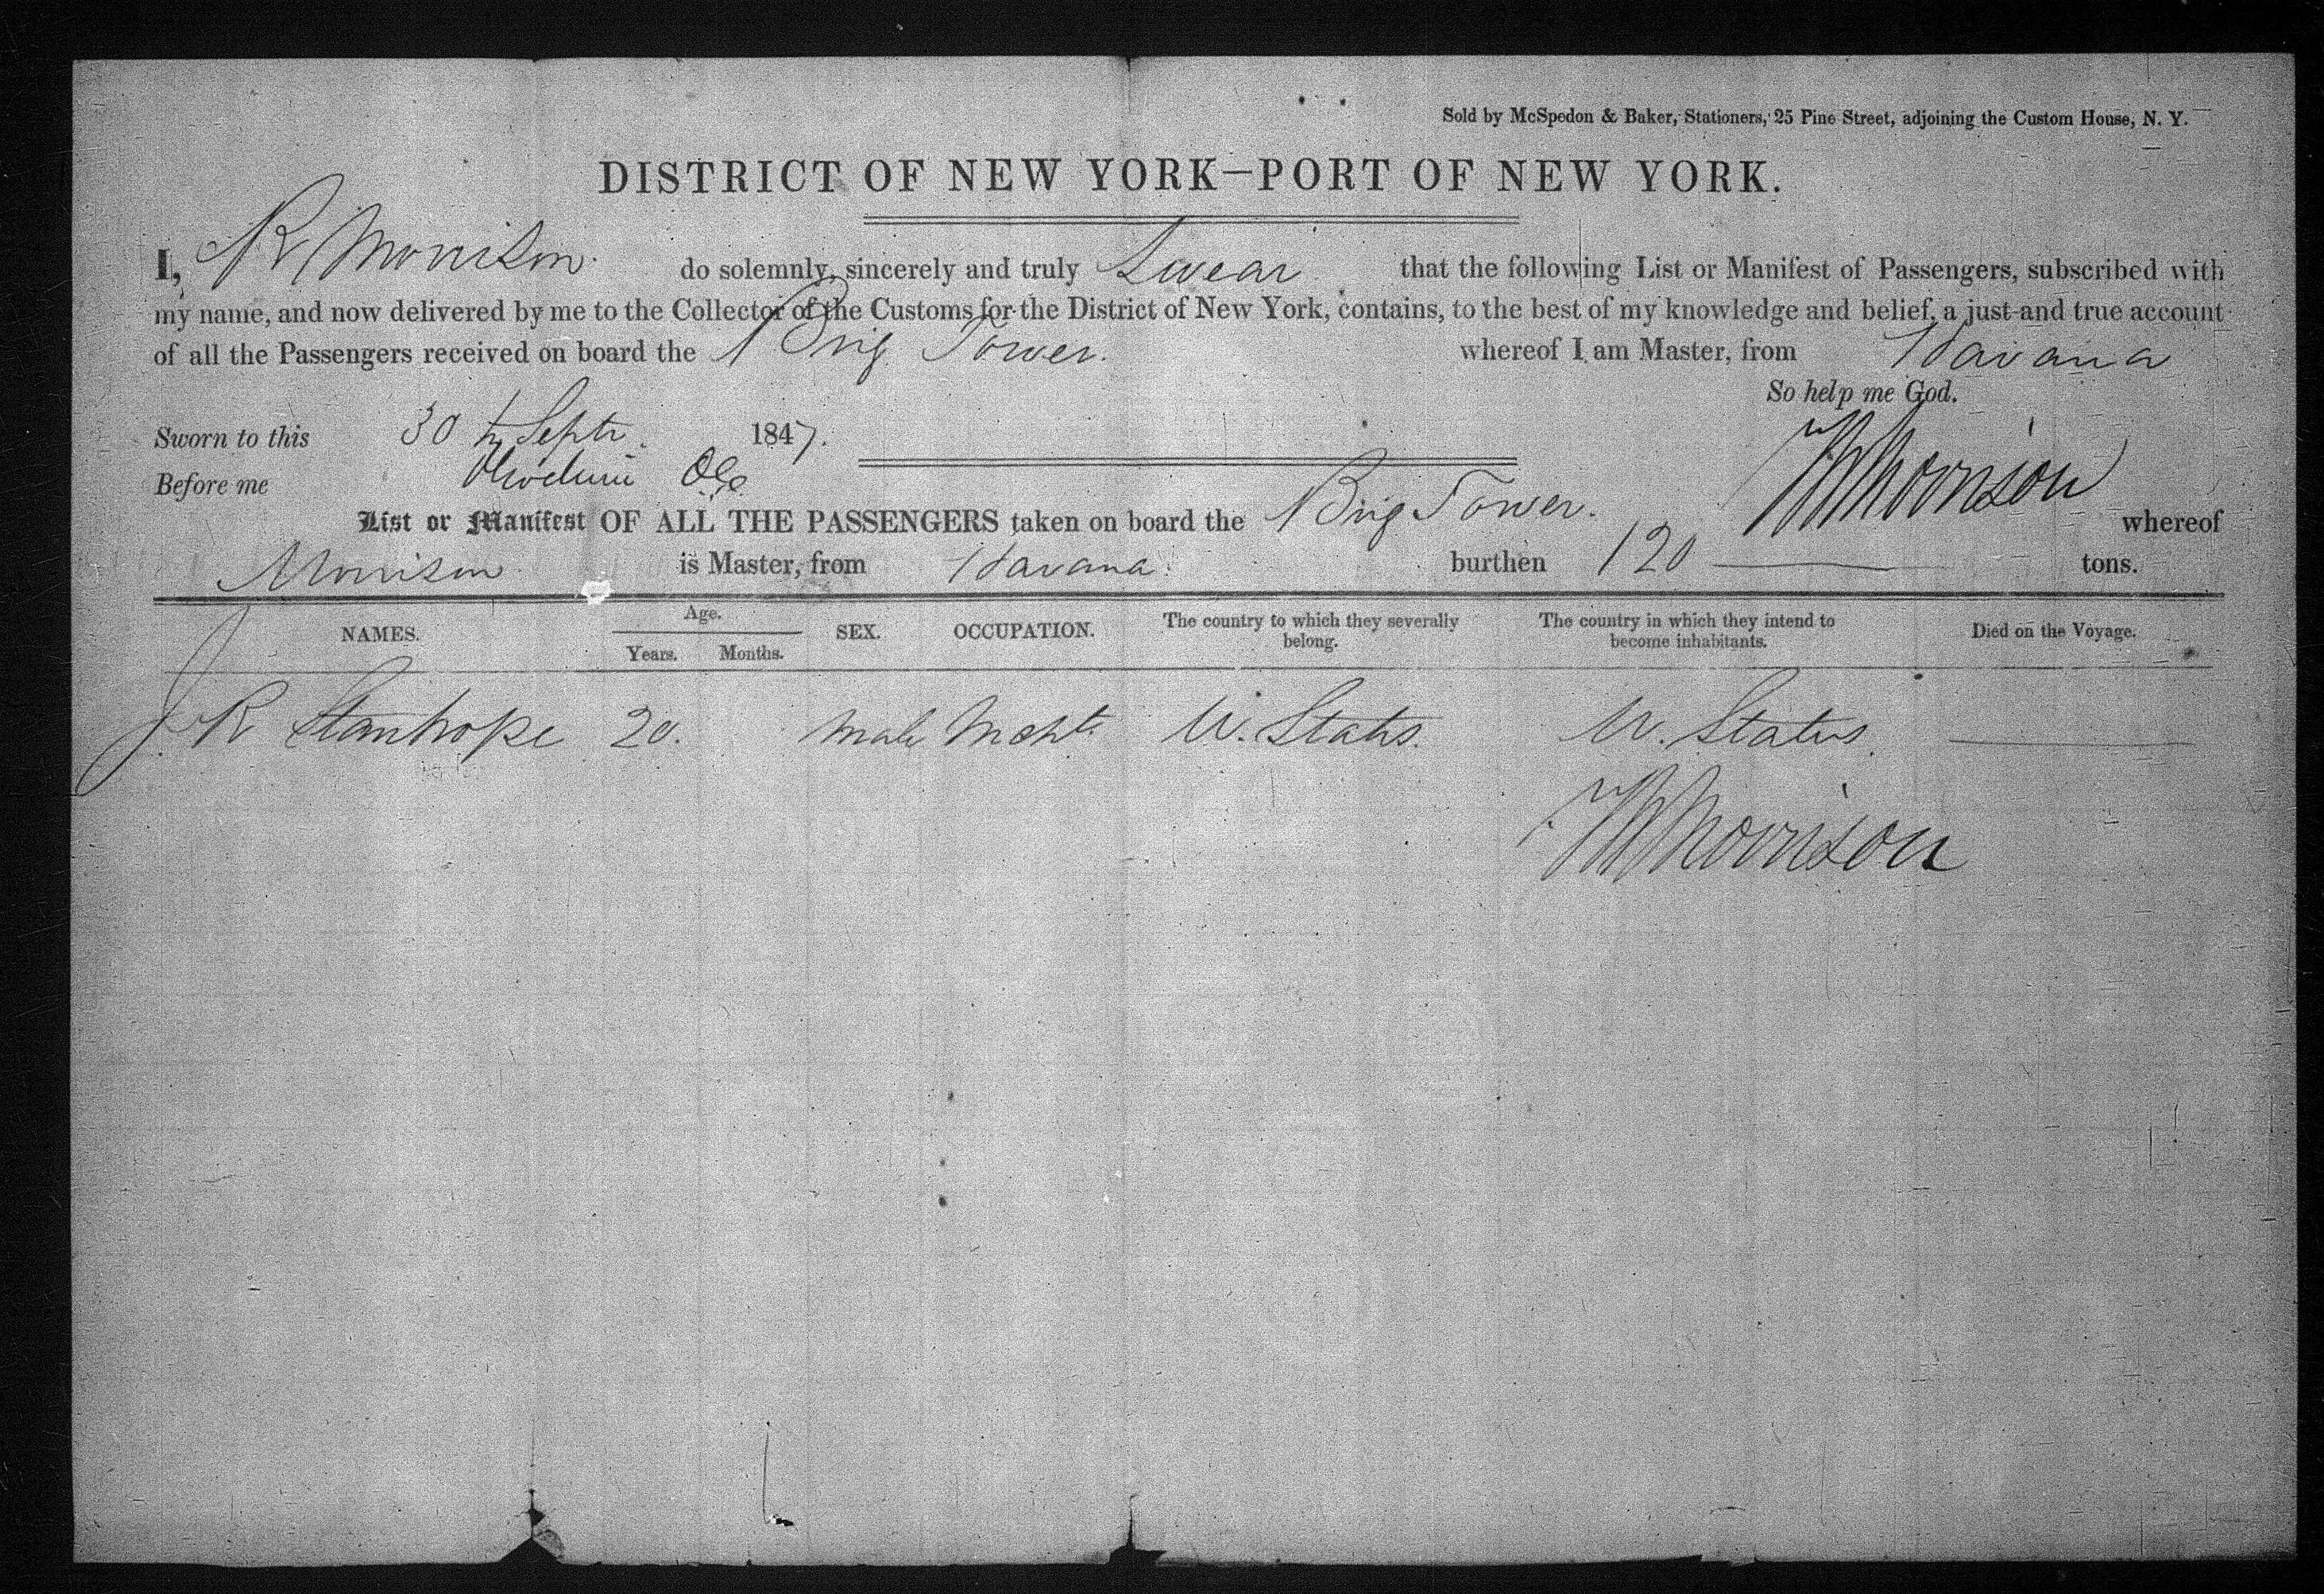 Sold by McSpedon & Baker, Stationers, 25 Pine Street, adjoining the Custom House, N. Y.
DISTRICT OF NEW YORK—PORT OF NEW YORK.
I, R Morrison do solemnly, sincerely and truly Swear that the following List or Manifest of Passengers, subscribed with
my name, and now delivered by me to the Collector of the Customs for the District of New York, contains, to the best of my knowledge and belief, a just and true account
of all the Passengers received on board the Brig Tower. whereof I am Master, from Havana
So help me God.
Sworn to this 30th Septr. 1847.
Before me
Morrison
List or Manifest OF ALL THE PASSENGERS taken on board the Brig Tower. whereof
Morrison is Master, from Havana. burthen 120 — tons.
NAMES. Age. Years. Months. SEX. OCCUPATION. The country to which they severally belong. The country in which they intend to become inhabitants. Died on the Voyage.
J. R Stanhope 20. male Mcht. U. States. U. States. —
Morrison